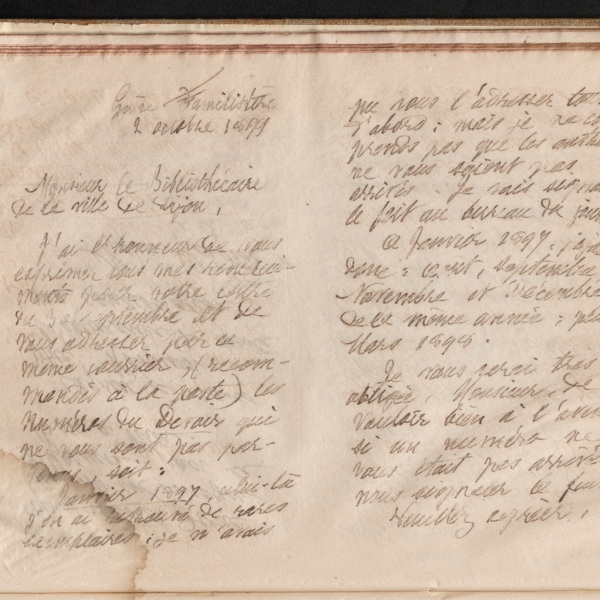 Guise Familistère
2 octobre 1899
Monsieur le Bibliothécaire
de la ville de Dijon,
J'ai l'honneur de vous
exprimer tous mes remerci-
ments pour votre lettre
du 30 septembre et de
vous adresser par ce
même courrier, (recom-
mandés à la poste) les
numéros du Devoir qui
ne vous sont pas par-
venus, soit :
Janvier 1897, celui-là
j'en ai retrouvé de rares
exemplaires ; je n'avais
pu vous l'adresser tout
d'abord : mais je ne com
prends pas que les autres
ne vous soient pas
arrivés. Je vais signaler
le fait au bureau du jour
à Janvier 1897, j'ajoute
donc : août, septembre
Novembre et Décembre
de la même année ; plus
Mars 1898.
Je vous serai très
obligée, Monsieur, de
vouloir bien à l'avenir
si un numéro ne
vous était pas arrivé
nous signaler le fait
Veuillez agréer,